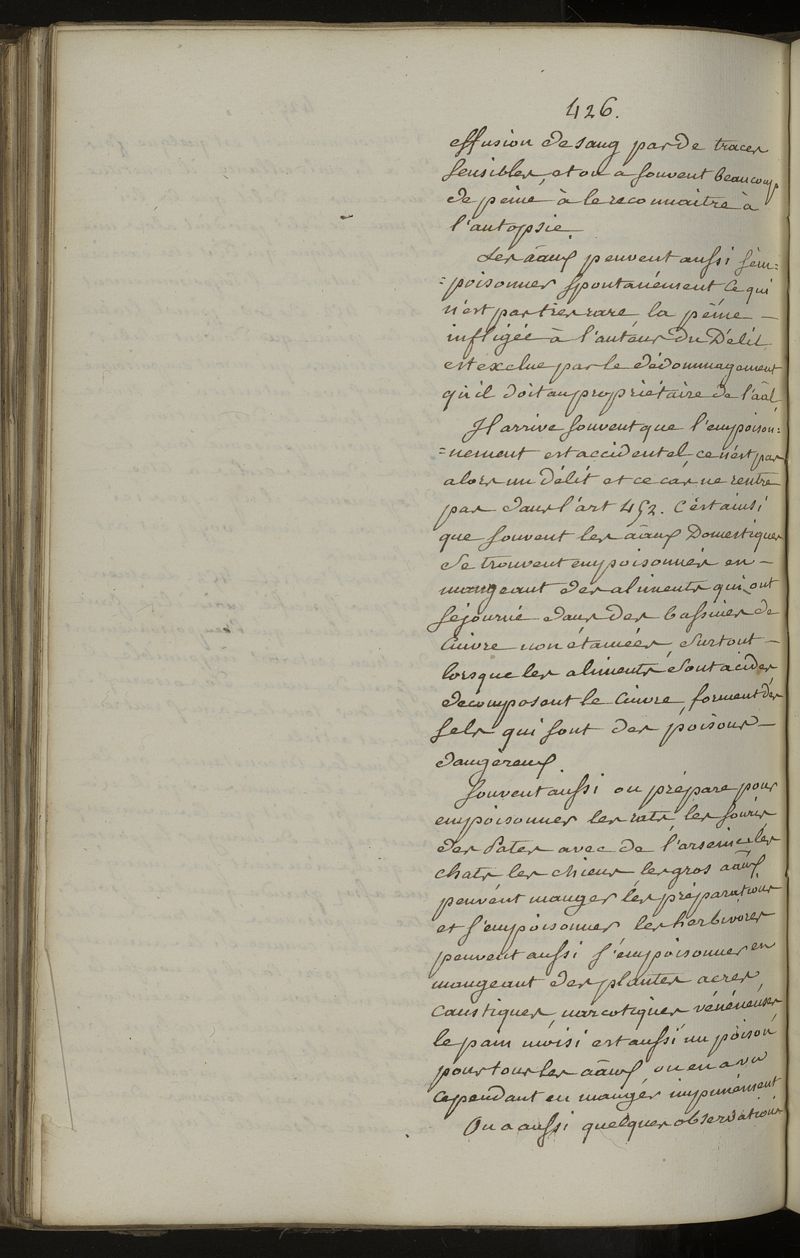 426.
effusion de sang pas de traces
sensibles, et on a souvent beaucoup
de peine à le reconnaitre à
l'autopsie.
Les aaux peuvent aussi s'em=
=poisonner spontanément ce qui
n'est pas tres rare la peine —
infligée à l'auteur du Délit
est exclue par le dédommagement
qu'il doit au propriétaire de l'aal
Il arrive souvent que l'empoison=
=nement est accidentel ce n'est pas
alors un délit et ce cas ne rentre
pas dans l'art 452. C'est ainsi
que souvent les aaux Domestiques
se trouvent empoisonnés en —
mangeant des aliments qui ont
séjourné dans des bassines de
Cuivre non étamées, surtout —
lorsque les aliments sont acides,
decomposent le Cuivre, forment des
sels qui sont des poisons —
dangereux.
Souvent aussi on prépare pour
empoisonner les rats, les souris
des Pates avec de l'arsenic, les
chats les chiens les gros aaux
peuvent manger les préparations
et s'empoisonner les herbivores
peuvent aussi s'empoisonner en
mangeant des plantes acres,
Caustiques, narcotiques vénéneuses
le pain moisi est aussi un poison
pour tous les aaux on en a vu
cependant en manger impunément
On a aussi quelques observations